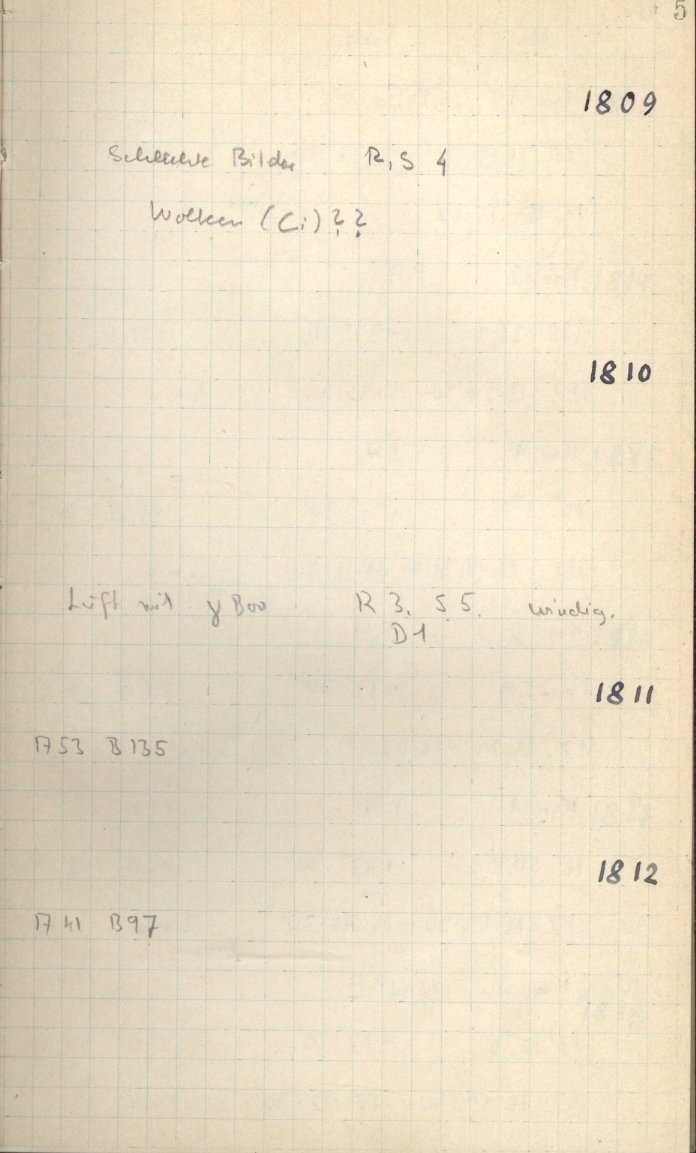 5
1809
Schlechte Bilder R, S 4
Wolken (Ci)??
1810
Luft mit γ Boo R 3, S 5. windig.
D1
1811
A 53 B 135
1812
A 41 B 97